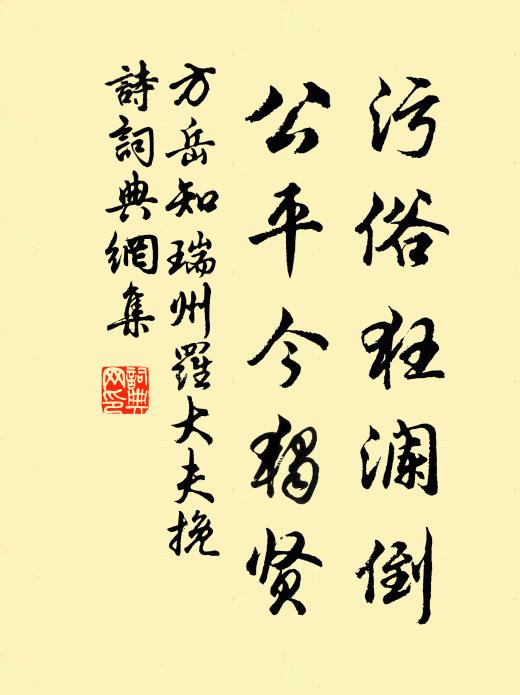 污俗狂澜倒
公平今独贤
方岳知瑞州羅大夫挽
詩詞典網集
詞典網印